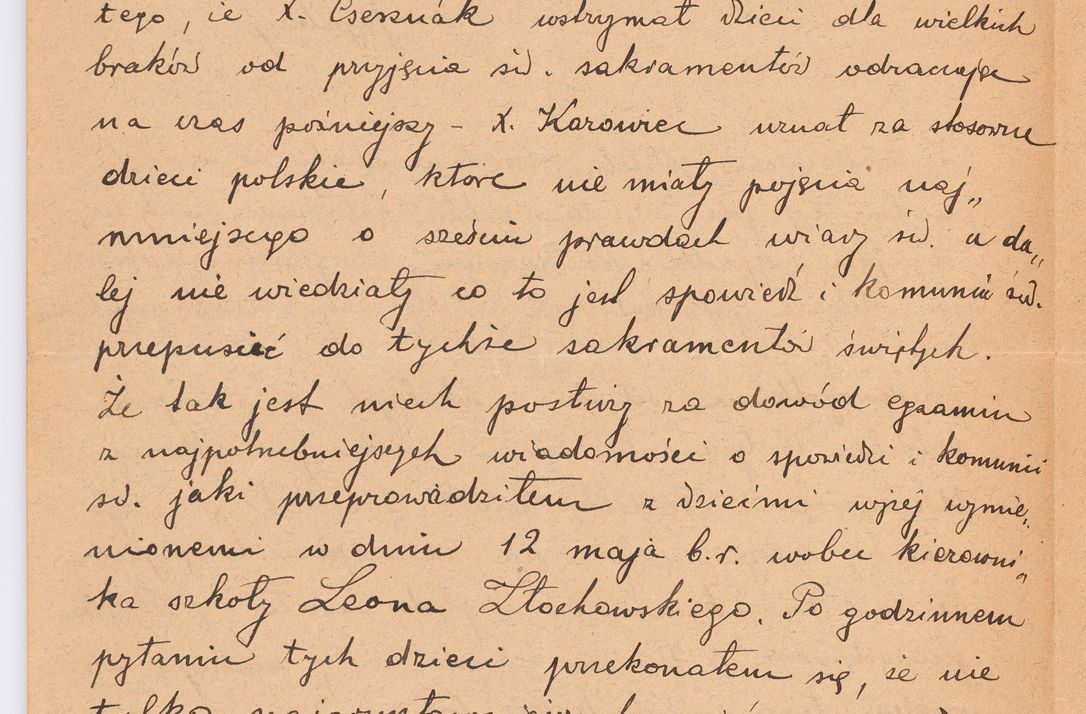 tego, że X. Cserznák wstrzymał dzieci dla wielkich
braków od przyjęcia św. sakramentów odraczając
na czas późniejszy - X. Karowiec uznał za stosowne
dzieci polskie, które nie miały pojęcia naj„
mniejszego o sześciu prawdach wiary św. a da„
lej nie wiedziały co to jest spowiedź i komunia św.
przepuścić do tychże sakramentów świętych.
Że tak jest niech posłuży za dowód egzamin
z najpotrzebniejszych wiadomości o spowiedzi i komunii
św. jaki przeprowadziłem z dziećmi wyżej wymie„
nionemi w dniu 12 maja b.r. wobec kierowni„
ka szkoły Leona Złochowskiego. Po godzinnem
pytaniu tych dzieci przekonałem się, że nie
tylko